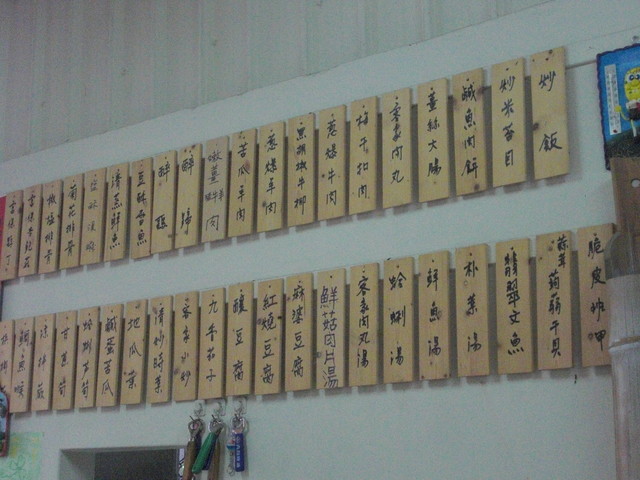 炒飯
炒米苔目
鹹魚肉餅
薑絲大腸
客家肉丸
梅干扣肉
蔥爆牛肉
黑胡椒牛柳
蔥爆羊肉
苦瓜羊肉
嫩薑羊肉
醉腸
豆酥鱼
清蒸鮮魚
菊花排骨
脆皮炸甲
蒜茸蒟蒻干貝
翡翠文魚
朴菜湯
鮮魚湯
蛤蜊湯
客家肉丸湯
鮮菇肉片湯
麻婆豆腐
紅燒豆腐
釀豆腐
九千茄子
客家小炒
清炒時菜
地瓜葉
鹹蛋苦瓜
蛤蜊芦筍
甘蔗筍